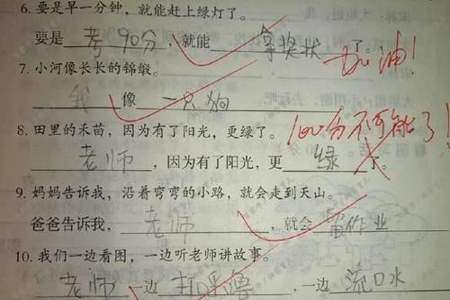 6. 要是早一分钟，就能赶上绿灯了。
要是 考90分，就能 拿奖状 了。
加油！
7. 小河像长长的锦缎。
我 像 一只狗
100分不可能了！
8. 田里的禾苗，因为有了阳光，更绿了。
老师，因为有了阳光，更 绿 了
9. 妈妈告诉我，沿着弯弯的小路，就会走到天山。
爸爸告诉我，老师，就会 留作业
10. 我们一边看图，一边听老师讲故事。
老师 一边 打呼噜，一边 流口水